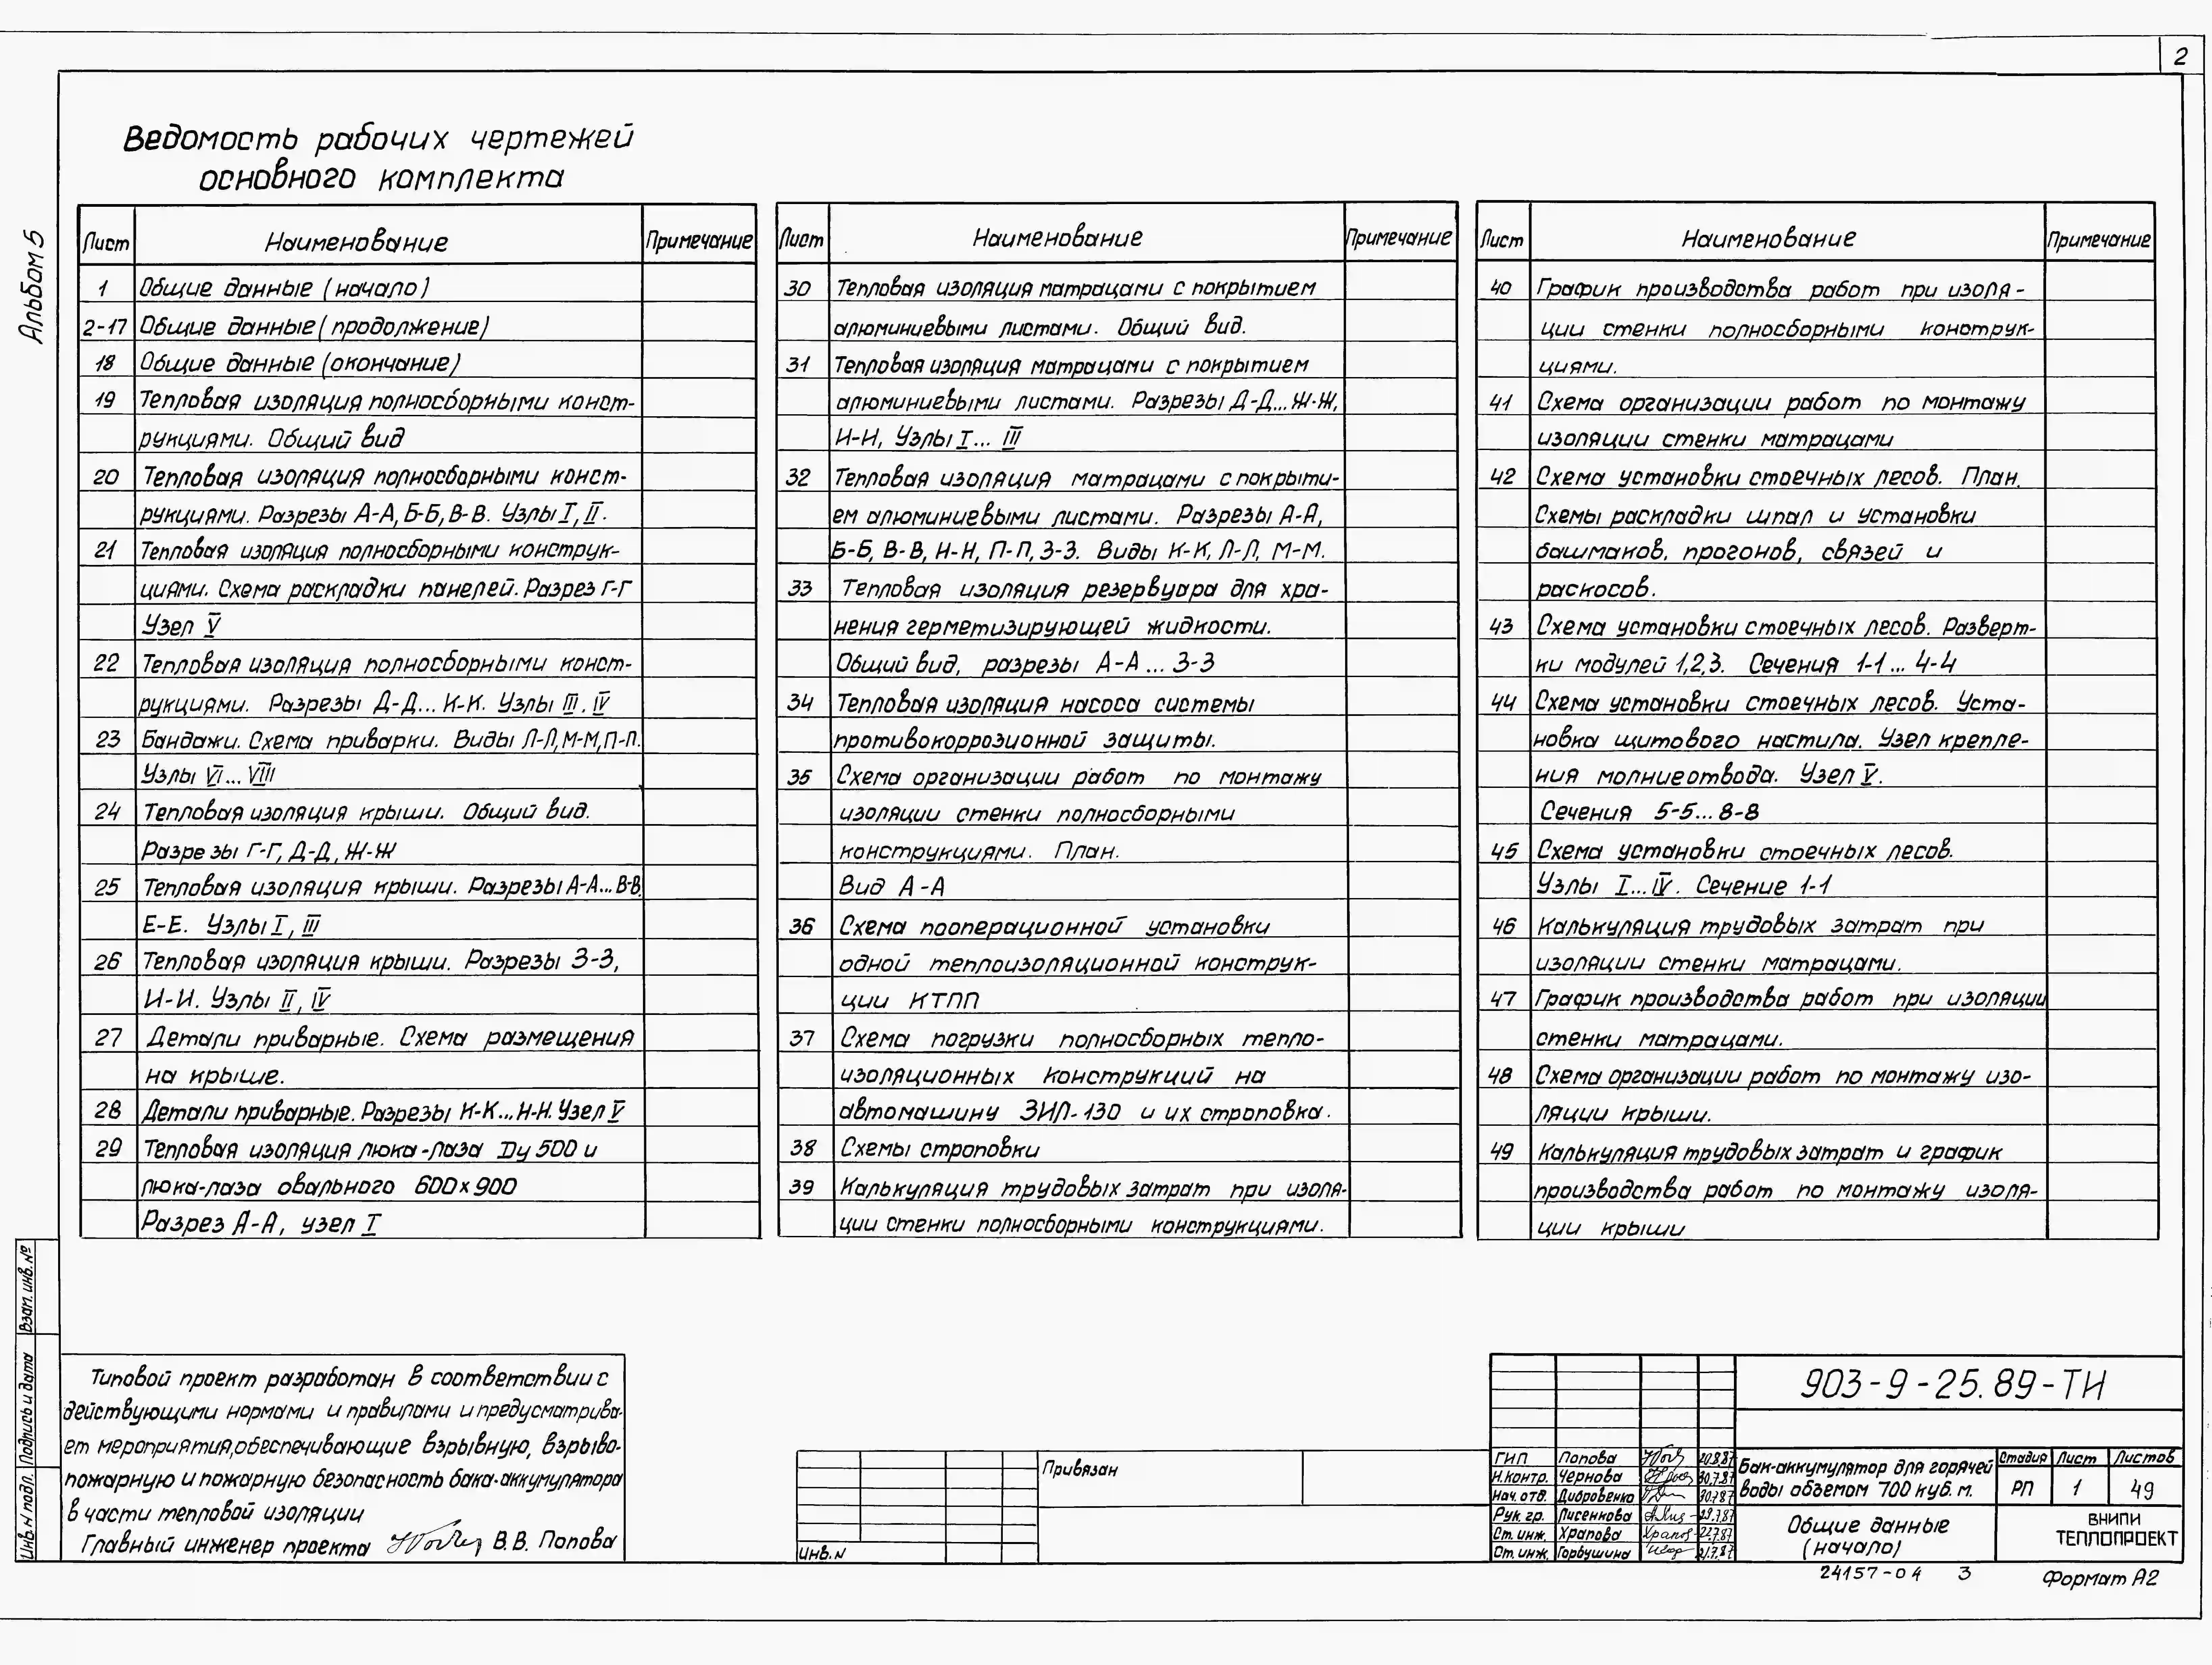 2
Альбом 5
Ведомость рабочих чертежей
основного комплекта
Лист Наименование Примечание
1 Общие данные (начало)
2-17 Общие данные (продолжение)
18 Общие данные (окончание)
19 Тепловая изоляция полносборными конст-
рукциями. Общий вид
20 Тепловая изоляция полносборными конст-
рукциями. Разрезы А-А, Б-Б, В-В. Узлы I, II.
21 Тепловая изоляция полносборными конструк-
циями. Схема раскладки панелей. Разрез Г-Г
Узел V
22 Тепловая изоляция полносборными конст-
рукциями. Разрезы Д-Д... К-К. Узлы III, IV
23 Бандажи. Схема приварки. Виды Л-Л, М-М, П-П.
Узлы VI... VIII
24 Тепловая изоляция крыши. Общий вид.
Разрезы Г-Г, Д-Д, Ж-Ж
25 Тепловая изоляция крыши. Разрезы А-А... В-В,
Е-Е. Узлы I, III
26 Тепловая изоляция крыши. Разрезы З-З,
И-И. Узлы II, IV
27 Детали приварные. Схема размещения
на крыше.
28 Детали приварные. Разрезы К-К... Н-Н. Узел V
29 Тепловая изоляция люка-лаза Dу 500 и
люка-лаза овального 600х900
Разрез А-А, узел I
Лист Наименование Примечание
30 Тепловая изоляция матрацами с покрытием
алюминиевыми листами. Общий вид.
31 Тепловая изоляция матрацами с покрытием
алюминиевыми листами. Разрезы Д-Д... Ж-Ж,
И-И, Узлы I... III
32 Тепловая изоляция матрацами с покрыти-
ем алюминиевыми листами. Разрезы А-А,
Б-Б, В-В, Н-Н, П-П, З-З. Виды К-К, Л-Л, М-М.
33 Тепловая изоляция резервуара для хра-
нения герметизирующей жидкости.
Общий вид, разрезы А-А... З-З
34 Тепловая изоляция насоса системы
противокоррозионной защиты.
35 Схема организации работ по монтажу
изоляции стенки полносборными
конструкциями. План.
Вид А-А
36 Схема пооперационной установки
одной теплоизоляционной конструк-
ции КТПП
37 Схема погрузки полносборных тепло-
изоляционных конструкций на
автомашину ЗИЛ-130 и их строповка.
38 Схемы строповки
39 Калькуляция трудовых затрат при изоля-
ции стенки полносборными конструкциями.
Лист Наименование Примечание
40 График производства работ при изоля-
ции стенки полносборными конструк-
циями.
41 Схема организации работ по монтажу
изоляции стенки матрацами
42 Схема установки стоечных лесов. План.
Схемы раскладки шпал и установки
башмаков, прогонов, связей и
раскосов.
43 Схема установки стоечных лесов. Разверт-
ки модулей 1,2,3. Сечения 1-1... 4-4
44 Схема установки стоечных лесов. Уста-
новка щитового настила. Узел крепле-
ния молниеотвода. Узел V.
Сечения 5-5... 8-8
45 Схема установки стоечных лесов.
Узлы I... IV. Сечение 1-1
46 Калькуляция трудовых затрат при
изоляции стенки матрацами.
47 График производства работ при изоляции
стенки матрацами.
48 Схема организации работ по монтажу изо-
ляции крыши.
49 Калькуляция трудовых затрат и график
производства работ по монтажу изоля-
ции крыши
Взам. инв. №
Подпись и дата
Инв. N подл.
Типовой проект разработан в соответствии с
действующими нормами и правилами и предусматрива-
ет мероприятия, обеспечивающие взрывную, взрыво-
пожарную и пожарную безопасность бака-аккумулятора
в части тепловой изоляции
Главный инженер проекта В.В. Попова
Привязан
Инв. N
903-9-25.89-ТИ
ГИП Попова 20.8.87
Н.контр. Чернова 30.7.87
Нач. отд. Дибровенко 30.7.87
Рук. гр. Лисенкова 29.7.87
Ст. инж. Храпова 22.7.87
Ст. инж. Горбушина 21.7.87
Бак-аккумулятор для горячей
воды объемом 700 куб. м.
Стадия Лист Листов
РП 1 49
Общие данные
(начало)
ВНИПИ
ТЕПЛОПРОЕКТ
24157-04 3
Формат А2